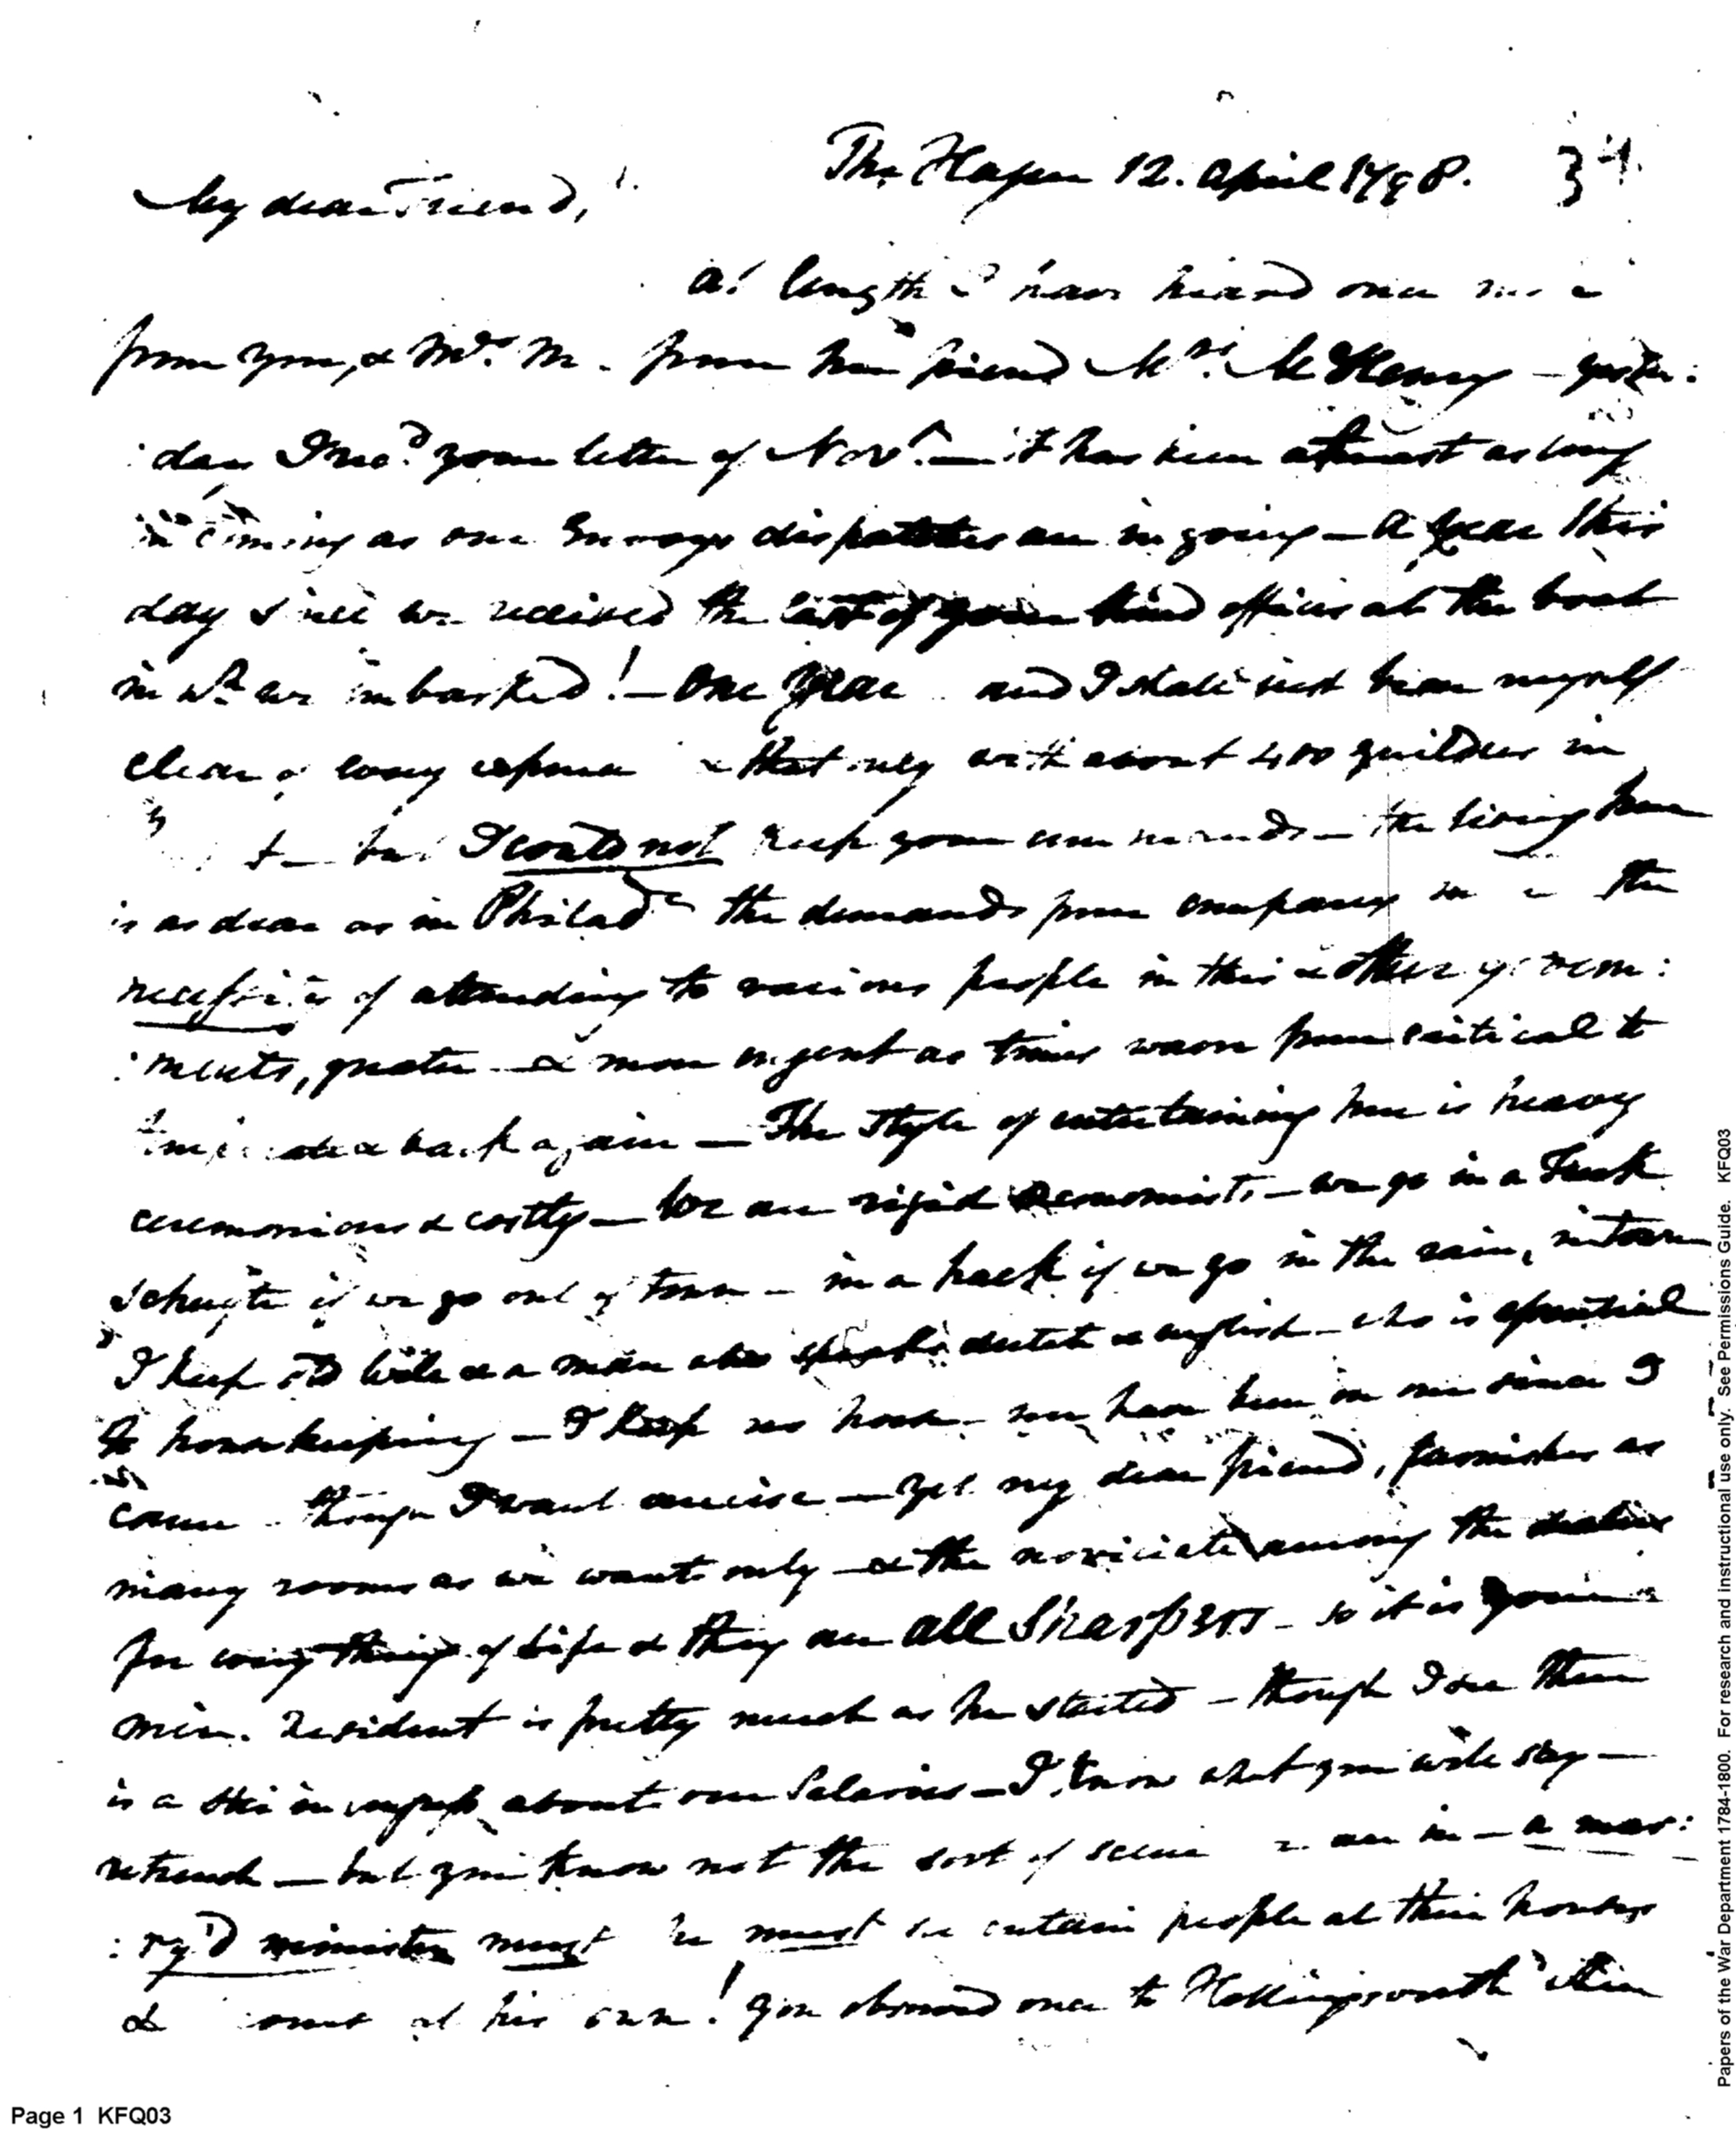 The Hague 12. April 1798.
My dear Friend,
At length I have heard once
from you, & Mrs. M. from her friend Mrs. McHenry – yester:
:day I recd. your letter of Novr. – it has been almost as long
in coming as our Envoys dispatches are in going – a year this
day since we received the last of your kind offices at the boat
in wh. we imbarked! – One year and I shall just bear myself
clear of every expence & that only with about 400 guilders in
but I could not keep your commands – the living here
is as dear as in Philada. the demands from company the
necessity of attending to various people in this & other govern:
:ments, greater & more urgent as times warn from critical to
& back again – The style of entertaining here is heavy
ceremonious & costly – We are rigid oeconomists – we go in a Treck
schuyte if we go out of town – in a hack if we go in the rain, in town
I keep old Will & a man who speaks dutch & english – who is essential
to housekeeping – I keep no horse – nor have been on one since I
came – though I want exercise – yet my dear friend, furnishes as
many rooms as we want only – & the noviciate among the dealers
for every thing of life & they are all Sharpers – so it is your
Min. Resident is pretty much as he started – though I see there
is a in congress about our Salaries – I know what you will say –
retrench – but you know not the sort of scene we are in – a mar:
:ry'd minister must he must see certain people at their houses
& some at his own! You observed once to Hollingsworth
Papers of the War Department 1784-1800. For research and instructional use only. See Permissions Guide. KFQ03
Page 1 KFQ03